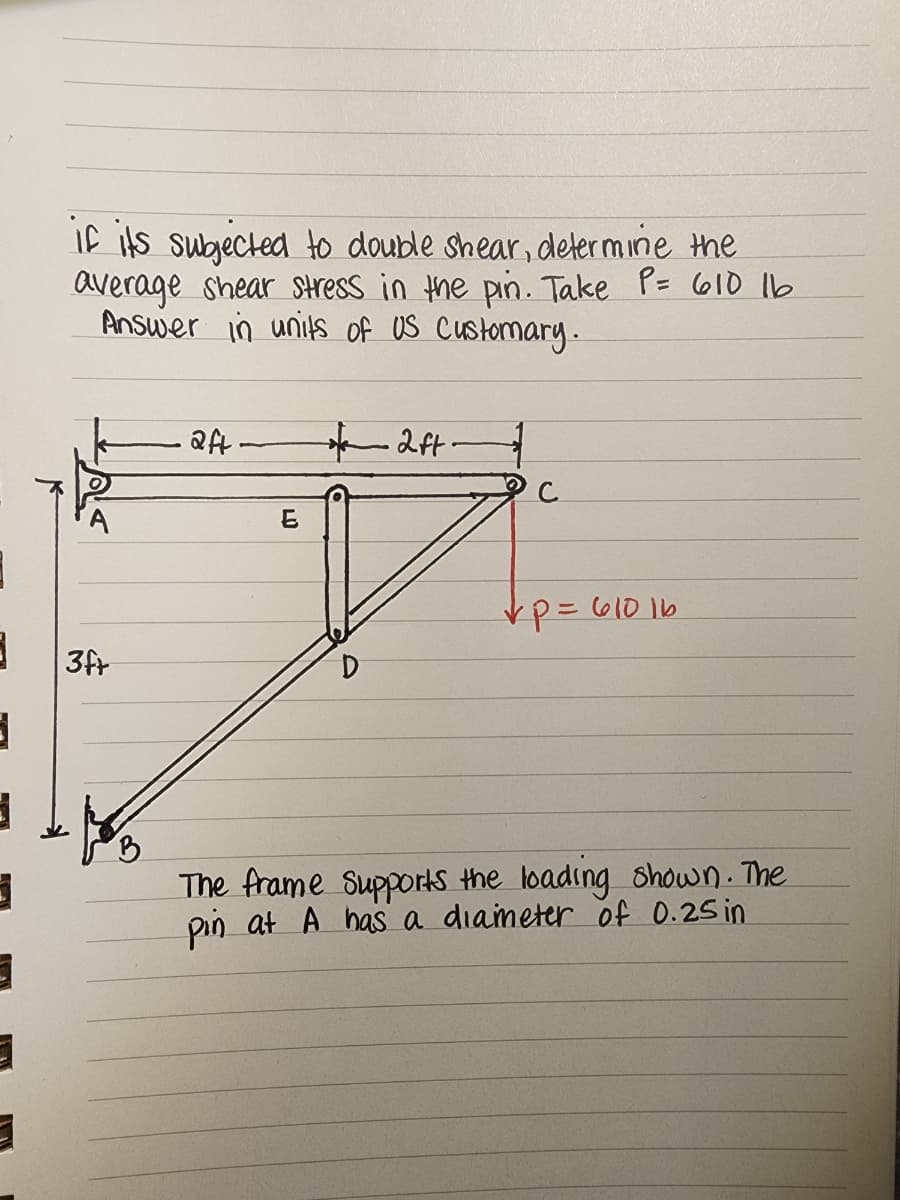 if its subjected to double shear, determine the
average shear stress in the pin. Take P= 610 lb
Answer in units of US Customary.
2ft
2ft
A
E
C
P= 610 lb
3ft
D
B
The frame supports the loading shown. The
pin at A has a diameter of 0.25 in